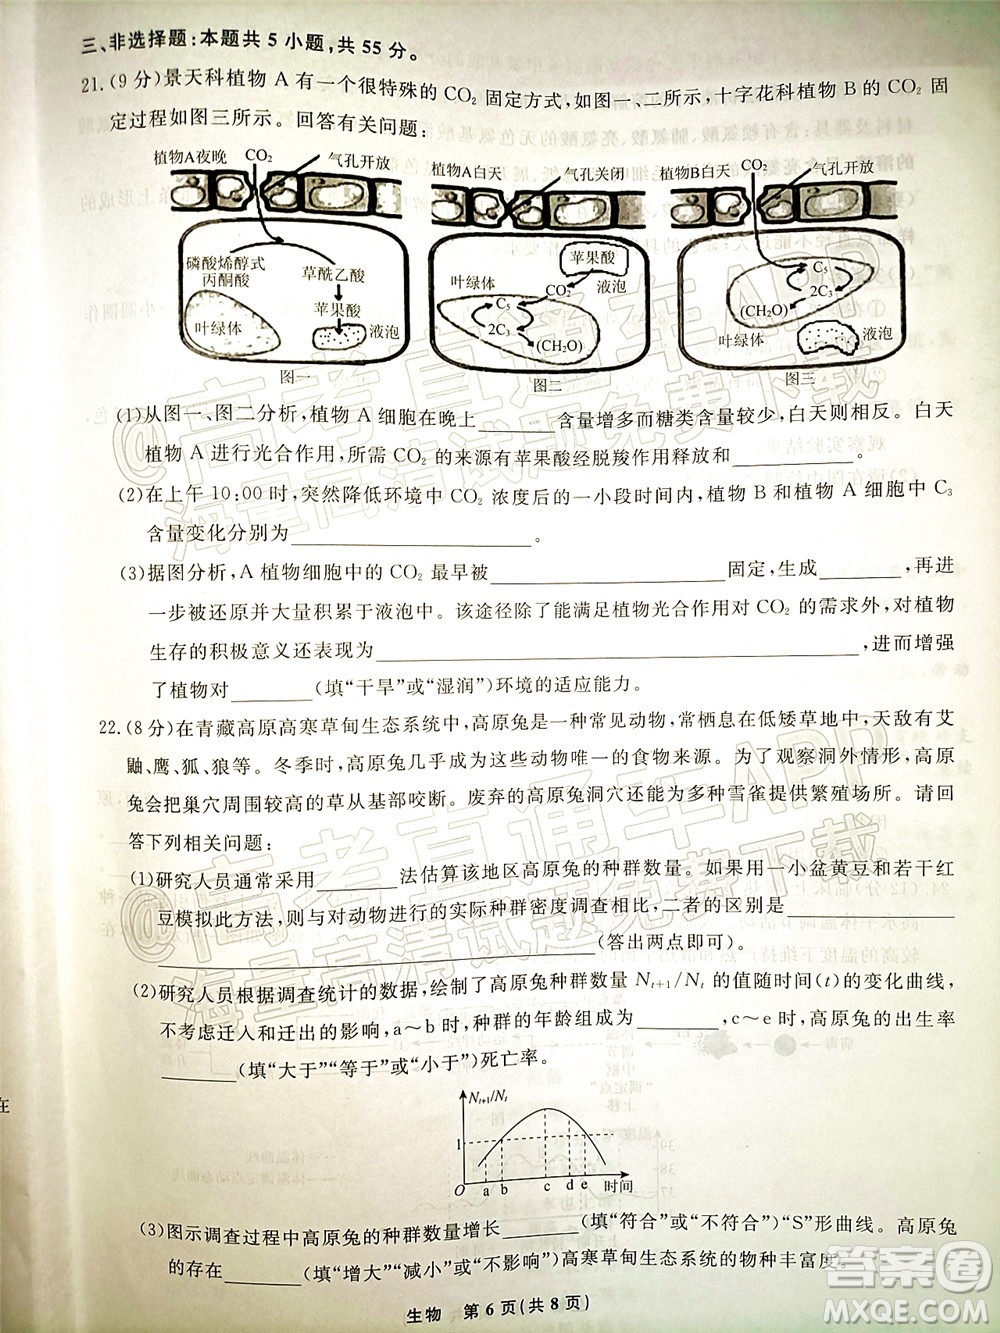 三、非选择题:本题共5小题,共55分。
21.(9分)景天科植物A有一个很特殊的CO₂固定方式,如图一、二所示,十字花科植物B的CO₂固
定过程如图三所示。回答有关问题:
植物A夜晚 CO₂ 气孔开放
植物A白天 气孔关闭
植物B白天 CO₂ 气孔开放
磷酸烯醇式
丙酮酸
草酰乙酸
苹果酸
叶绿体
液泡
图一
苹果酸
叶绿体
CO₂
液泡
C₅
2C₃
(CH₂O)
图二
C₅
2C₃
(CH₂O)
叶绿体
液泡
图三
(1)从图一、图二分析,植物A细胞在晚上________含量增多而糖类含量较少,白天则相反。白天
植物A进行光合作用,CO₂的来源有苹果酸经脱羧作用释放和____________。
(2)在上午10:00时,突然降低环境中CO₂浓度后的一小段时间内,植物B和植物A细胞中C₃
含量变化分别为____________________。
(3)据图分析,A植物细胞中的CO₂最早被____________________固定,生成________,再进
一步被还原并大量积累于液泡中。该途径除了能满足植物光合作用对CO₂的需求外,对植物
生存的积极意义还表现在________________________________________,进而增强
了植物对________(填“干旱”或“湿润”)环境的适应能力。
22.(8分)在青藏高原高寒草甸生态系统中,高原兔是一种常见动物,常栖息在低矮草地中,天敌有艾
鼬、鹰、狐、狼等。冬季时,高原兔几乎成了这些动物唯一的食物来源。为了观察洞外情形,高原
兔会把巢穴周围较高的草从基部咬断。废弃的高原兔洞穴还能为多种雪雀提供繁殖场所。请回
答下列相关问题:
(1)研究人员通常采用________法估算该地区高原兔的种群数量。如果用一小盆黄豆和若干红
豆模拟此方法,则与对动物进行的实际种群密度调查相比,二者的区别是____________
________________________________________(答出两点即可)。
(2)研究人员根据调查统计的数据,绘制了高原兔种群数量Nₜ₊₁/Nₜ的值随时间(t)的变化曲线,
不考虑迁入和迁出的影响,a~b时,种群的年龄组成为________,c~e时,高原兔的出生率
________(填“大于”“等于”或“小于”)死亡率。
Nₜ₊₁/Nₜ
1
O a b c d e 时间
(3)图示调查过程中高原兔的种群数量增长________(填“符合”或“不符合”)“S”形曲线。高原兔
的存在________(填“增大”“减小”或“不影响”)高寒草甸生态系统的物种丰富度。
生物 第6页(共8页)
在
@高考直通车APP
海量高清试题免费下载
@高考直通车APP
海量高清试题免费下载
答案圈
MXQE.COM